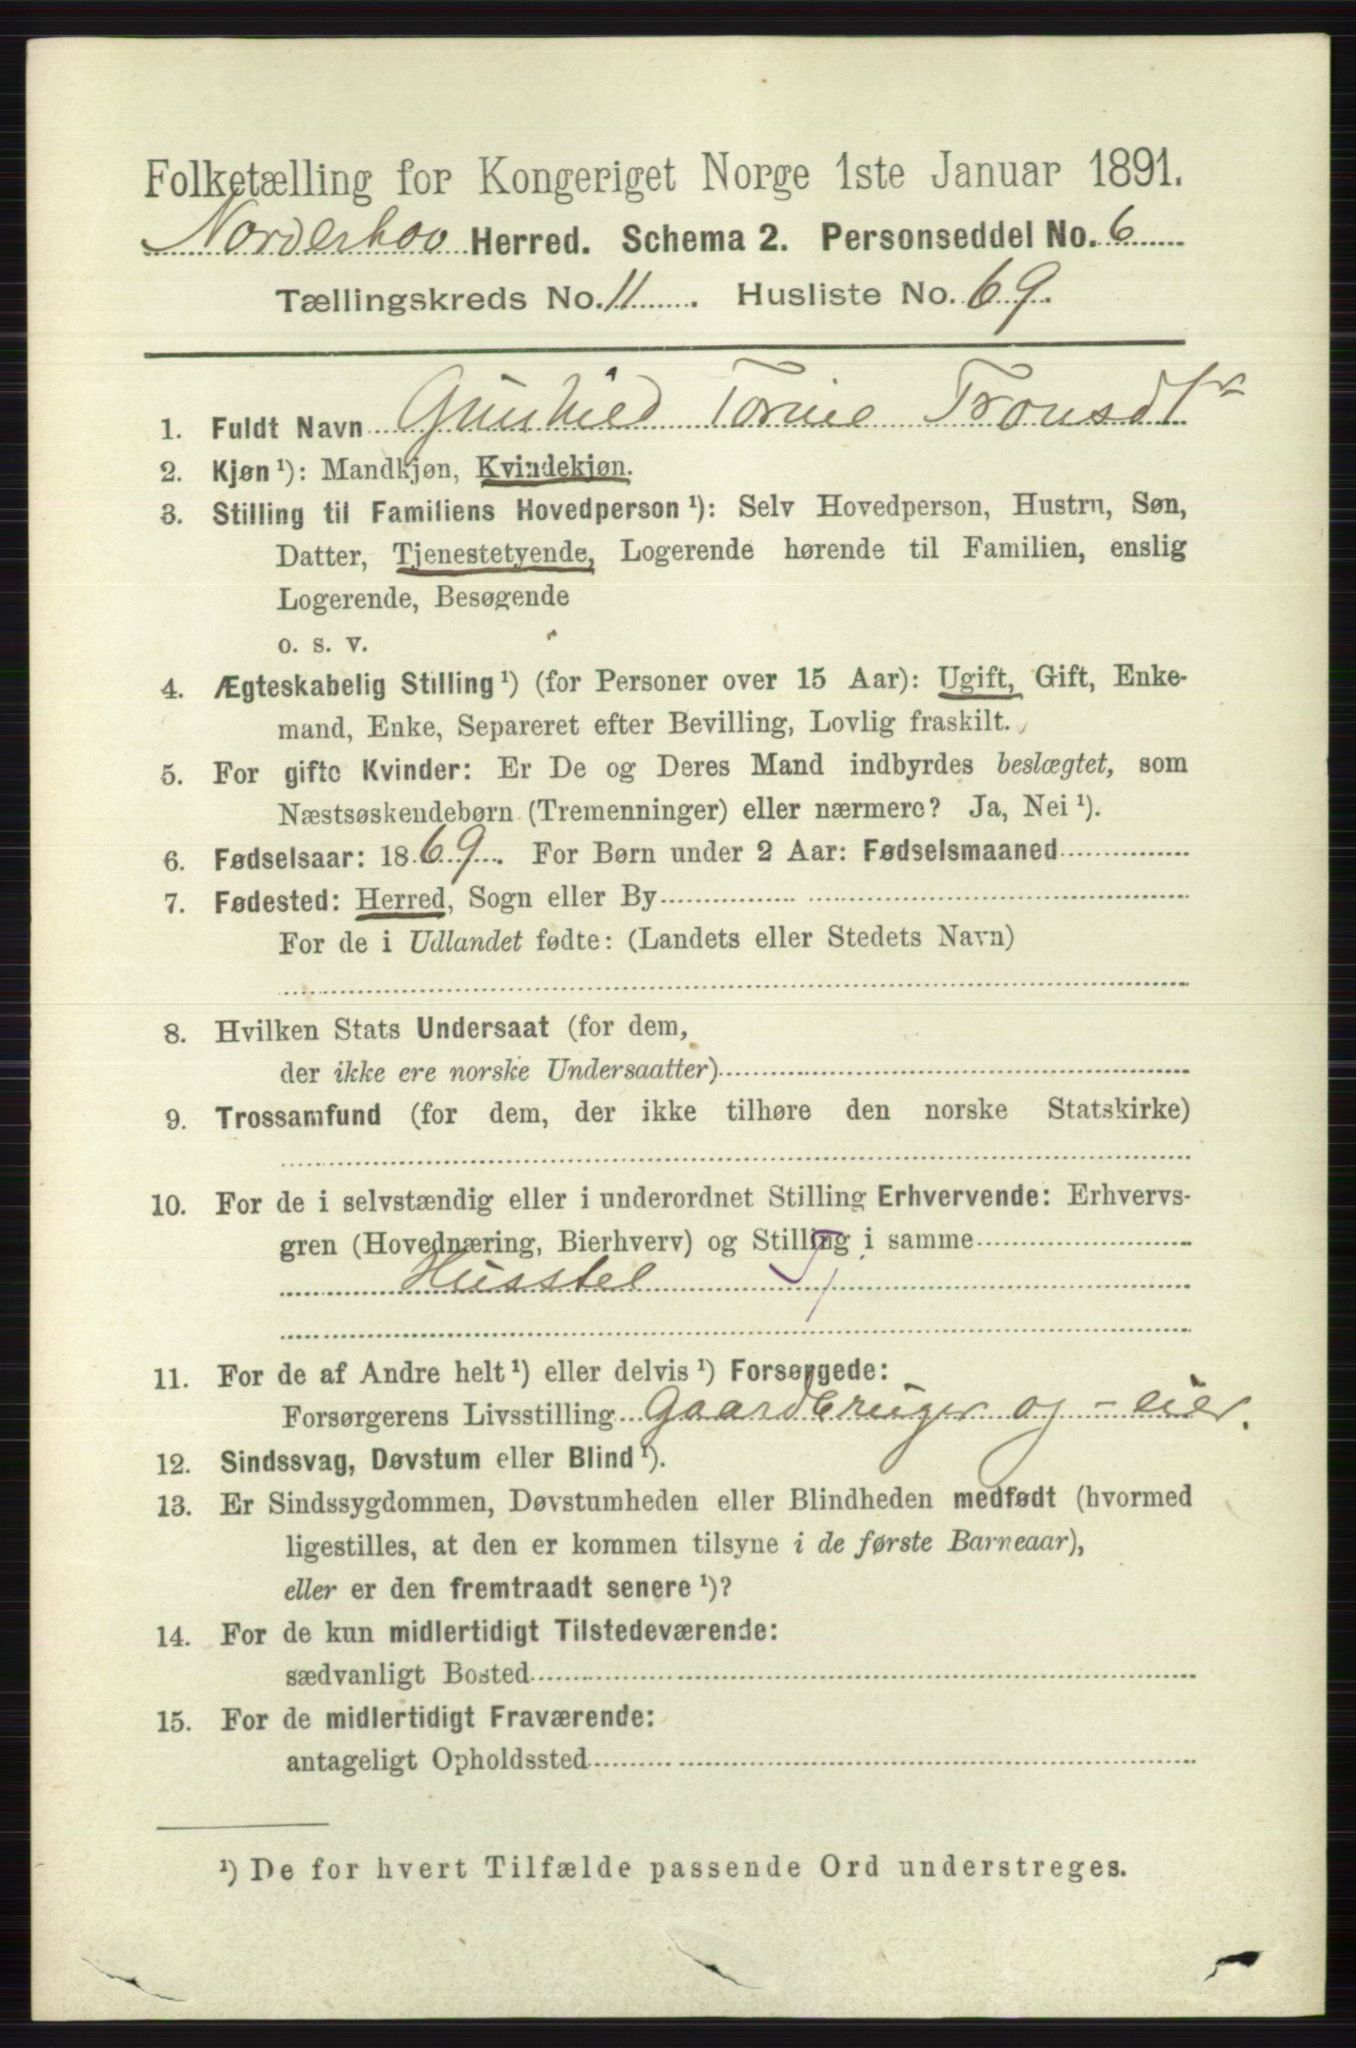 Folketælling for Kongeriget Norge 1ste Januar 1891.
Norderhov Herred. Schema 2. Personseddel No. 6
Tællingskreds No. 11. Husliste No. 69.
1. Fuldt Navn Gunhild Torine Tronsdtr
2. Kjøn ¹): Mandkjøn, Kvindekjøn.
3. Stilling til Familiens Hovedperson ¹): Selv Hovedperson, Hustru, Søn,
Datter, Tjenestetyende, Logerende hørende til Familien, enslig
Logerende, Besøgende
o. s. v.
4. Ægteskabelig Stilling ¹) (for Personer over 15 Aar): Ugift, Gift, Enke-
mand, Enke, Separeret efter Bevilling, Lovlig fraskilt.
5. For gifte Kvinder: Er De og Deres Mand indbyrdes beslægtet, som
Næstsøskendebørn (Tremenninger) eller nærmere? Ja, Nei ¹).
6. Fødselsaar: 1869. For Børn under 2 Aar: Fødselsmaaned
7. Fødested: Herred, Sogn eller By
For de i Udlandet fødte: (Landets eller Stedets Navn)
8. Hvilken Stats Undersaat (for dem,
der ikke ere norske Undersaatter)
9. Trossamfund (for dem, der ikke tilhøre den norske Statskirke)
10. For de i selvstændig eller i underordnet Stilling Erhvervende: Erhvervs-
gren (Hovednæring, Bierhverv) og Stilling i samme
Husstel Tj.
11. For de af Andre helt ¹) eller delvis ¹) Forsørgede:
Forsørgerens Livsstilling Gaardbruger og - eier.
12. Sindssvag, Døvstum eller Blind ¹).
13. Er Sindssygdommen, Døvstumheden eller Blindheden medfødt (hvormed
ligestilles, at den er kommen tilsyne i de første Barneaar),
eller er den fremtraadt senere ¹)?
14. For de kun midlertidigt Tilstedeværende:
sædvanligt Bosted
15. For de midlertidigt Fraværende:
antageligt Opholdssted
¹) De for hvert Tilfælde passende Ord understreges.